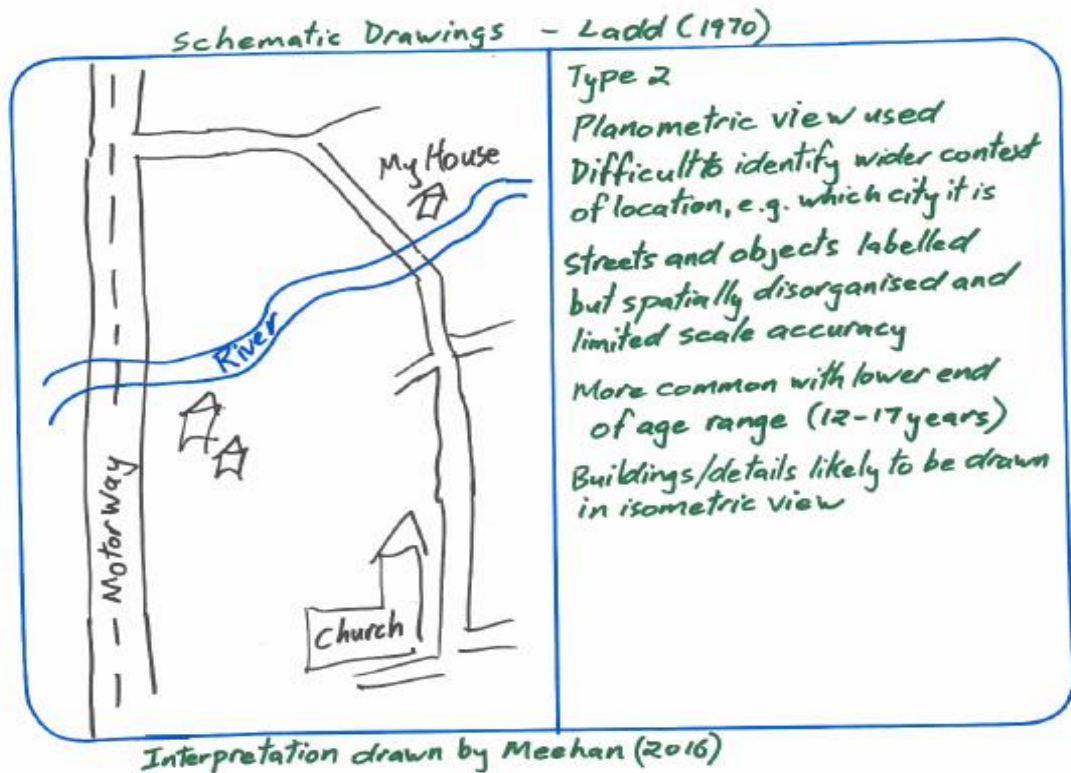 Schematic Drawings - Ladd (1970)
My House
River
Motorway
Church
Type 2
Planometric view used
Difficult to identify wider context
of location, e.g. which city it is
Streets and objects labelled
but spatially disorganised and
limited scale accuracy
More common with lower end
of age range (12-17 years)
Buildings/details likely to be drawn
in isometric view
Interpretation drawn by Meehan (2016)